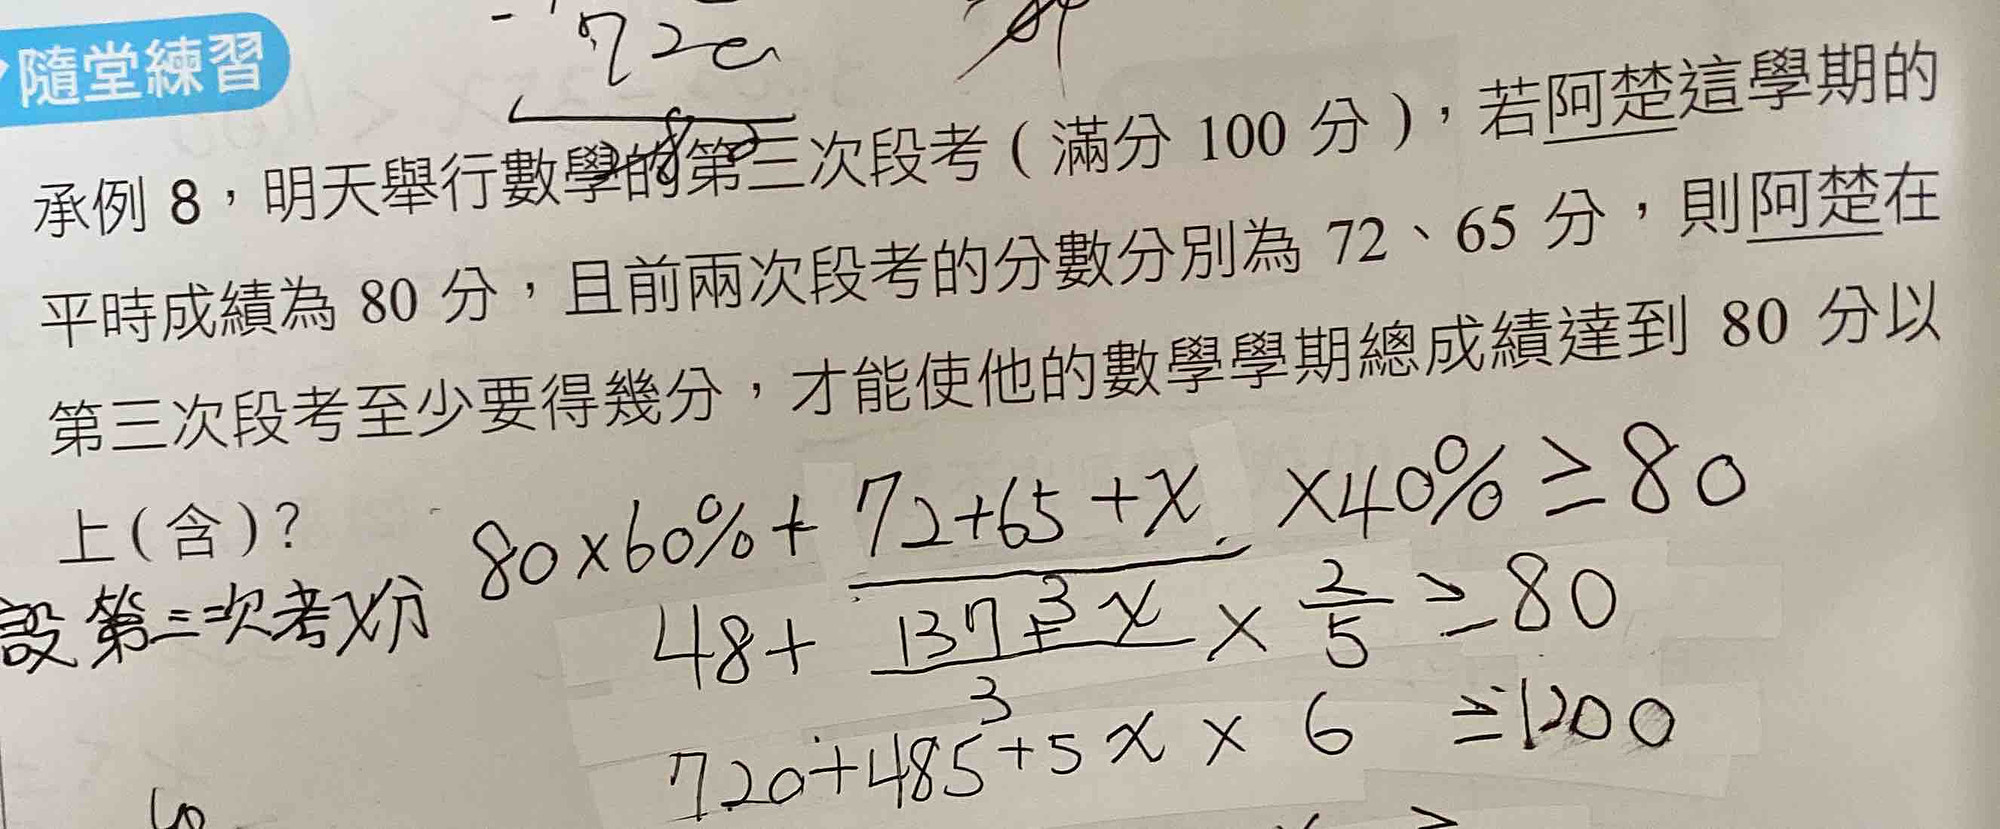 720
隨堂練習
承例 8，明天舉行數學的第三次段考（滿分 100 分），若阿楚這學期的
平時成績為 80 分，且前兩次段考的分數分別為 72、65 分，則阿楚在
第三次段考至少要得幾分，才能使他的數學學期總成績達到 80 分以
上（含）？
80×60%+ 72+65+x/3 ×40% ≥80
設第三次考x分
48+ 137+x/3 × 2/5 ≥80
720+485+5x × 6 ≥1200